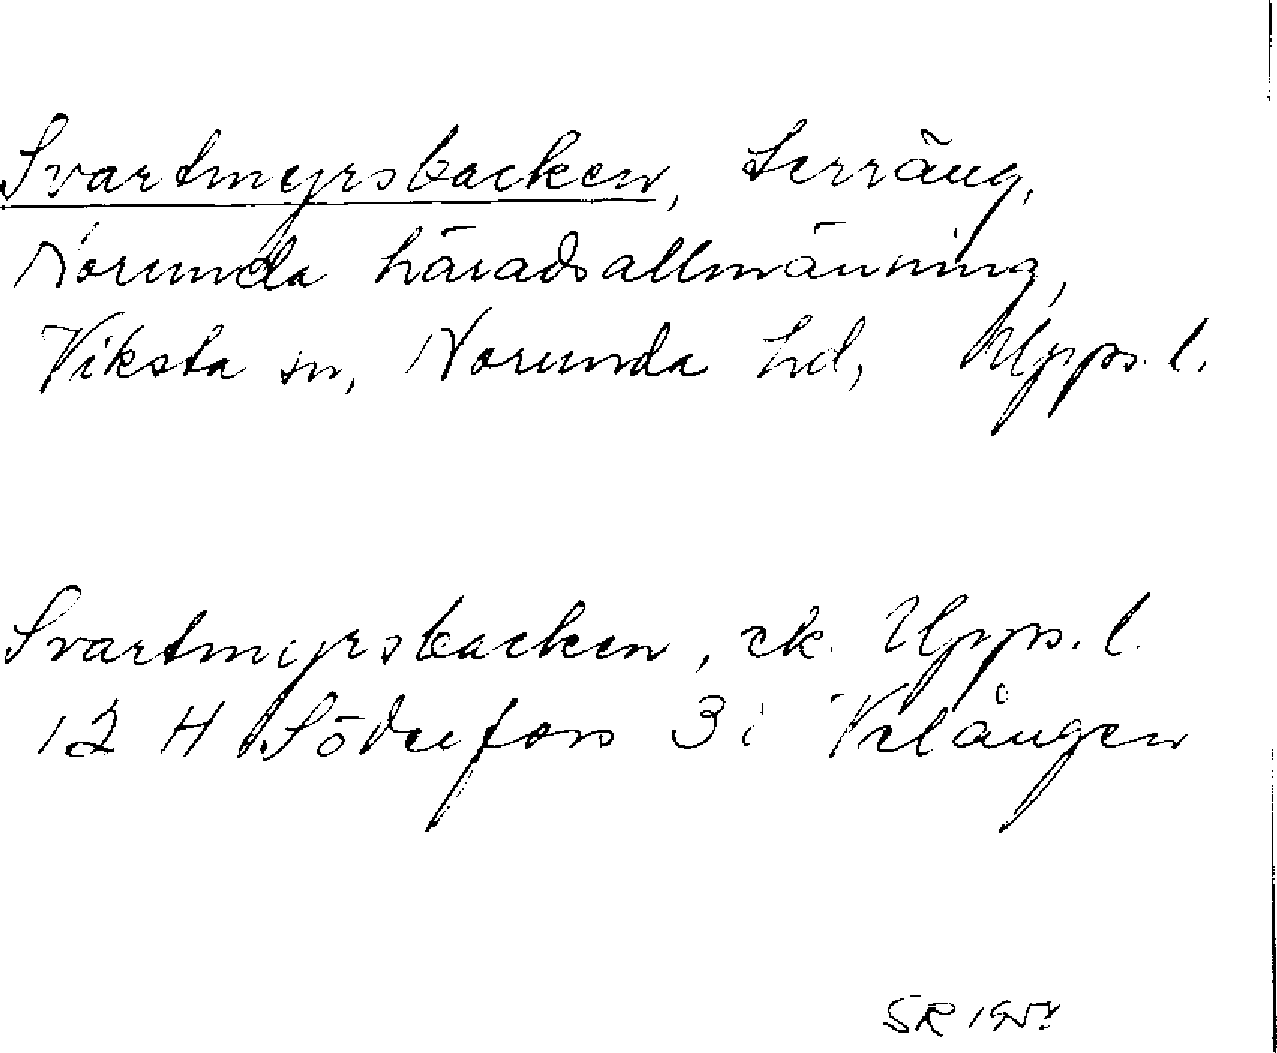 Svartmyrsbacken, terräng,
Norunda häradsallmänning,
Viksta sn, Norunda hd, Upps. l.
Svartmyrsbacken, ek. Upps. l.
12 H Söderfors 3 i Velången
SR